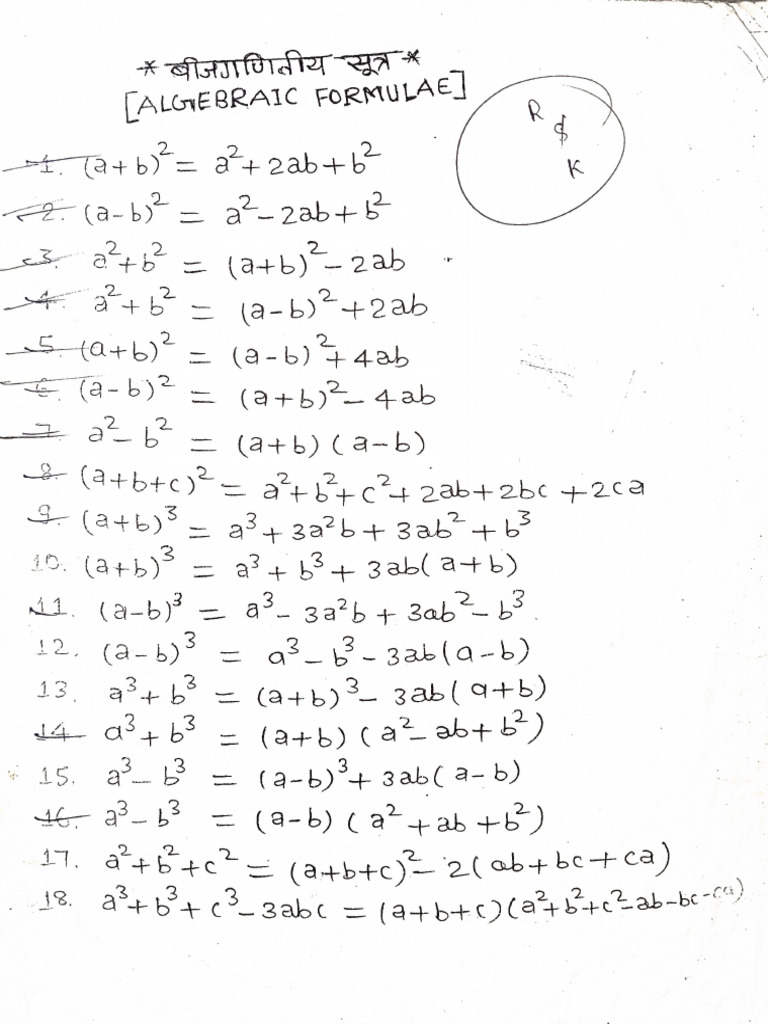 * बीजगणितीय सूत्र *
[ALGEBRAIC FORMULAE]
R
&
K
1. (a+b)² = a²+2ab+b²
2. (a-b)² = a²-2ab+b²
3. a²+b² = (a+b)²-2ab
4. a²+b² = (a-b)²+2ab
5. (a+b)² = (a-b)²+4ab
6. (a-b)² = (a+b)²-4ab
7. a²-b² = (a+b)(a-b)
8. (a+b+c)² = a²+b²+c²+2ab+2bc+2ca
9. (a+b)³ = a³+3a²b+3ab²+b³
10. (a+b)³ = a³+b³+3ab(a+b)
11. (a-b)³ = a³-3a²b+3ab²-b³
12. (a-b)³ = a³-b³-3ab(a-b)
13. a³+b³ = (a+b)³-3ab(a+b)
14 a³+b³ = (a+b)(a²-ab+b²)
15. a³-b³ = (a-b)³+3ab(a-b)
16. a³-b³ = (a-b)(a²+ab+b²)
17. a²+b²+c² = (a+b+c)²-2(ab+bc+ca)
18. a³+b³+c³-3abc = (a+b+c)(a²+b²+c²-ab-bc-ca)